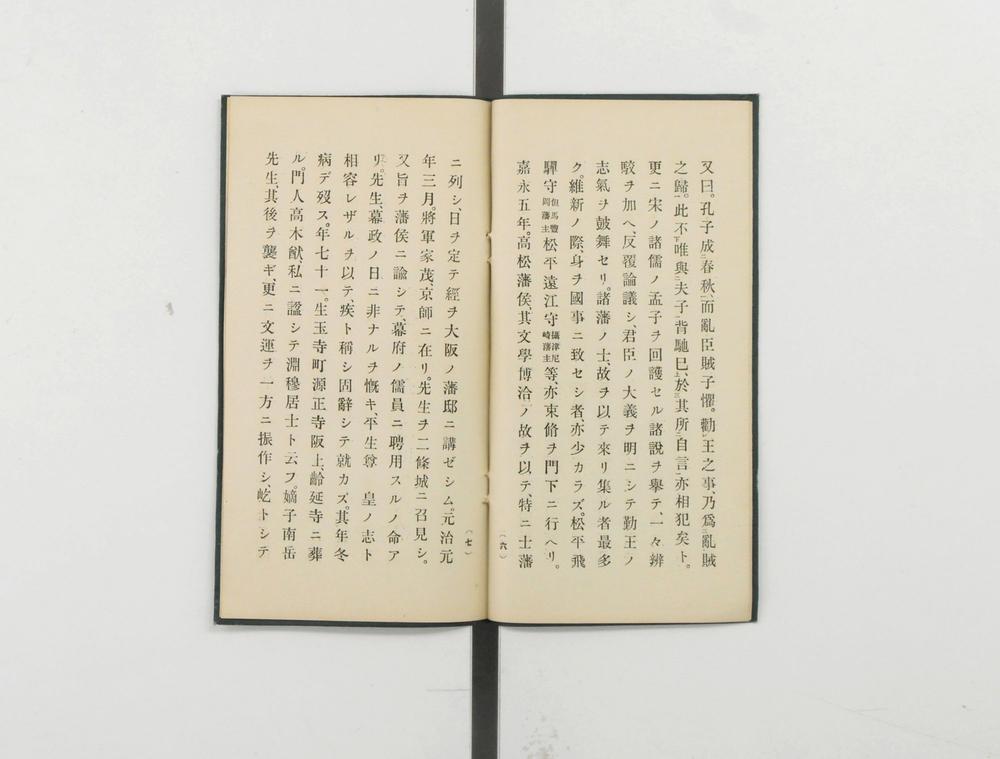 又曰。孔子成春秋、而亂臣賊子懼。勸王之事、乃爲亂賊
之歸。此不唯與夫子背馳已、於其所自言、亦相犯矣ト。
更ニ宋ノ諸儒ノ孟子ヲ回護セル諸說ヲ擧テ、一々辨
駁ヲ加ヘ、反覆論議シ、君臣ノ大義ヲ明ニシテ勤王ノ
志氣ヲ鼓舞セリ。諸藩ノ士、故ヲ以テ來リ集ル者最多
ク。維新ノ際、身ヲ國事ニ致セシ者、亦少カラズ。松平飛
驒守但馬豐岡藩主松平遠江守攝津尼崎藩主等、亦束脩ヲ門下ニ行ヘリ。
嘉永五年。高松藩侯、其文學博洽ノ故ヲ以テ、特ニ士藩
（六）
ニ列シ、日ヲ定テ經ヲ大阪ノ藩邸ニ講ゼシム。元治元
年三月。將軍家茂、京師ニ在リ。先生ヲ二條城ニ召見シ。
又旨ヲ藩侯ニ諭シテ、幕府ノ儒員ニ聘用スルノ命ア
リ。先生、幕政ノ日ニ非ナルヲ慨キ、平生尊　皇ノ志ト
相容レザルヲ以テ、疾ト稱シ固辭シテ就カズ。其年冬
病デ歿ス。年七十一。生玉寺町源正寺阪上、齡延寺ニ葬
ル。門人高木猷、私ニ諡シテ淵穆居士ト云フ。嫡子南岳
先生、其後ヲ襲ギ、更ニ文運ヲ一方ニ振作シ、屹トシテ
（七）